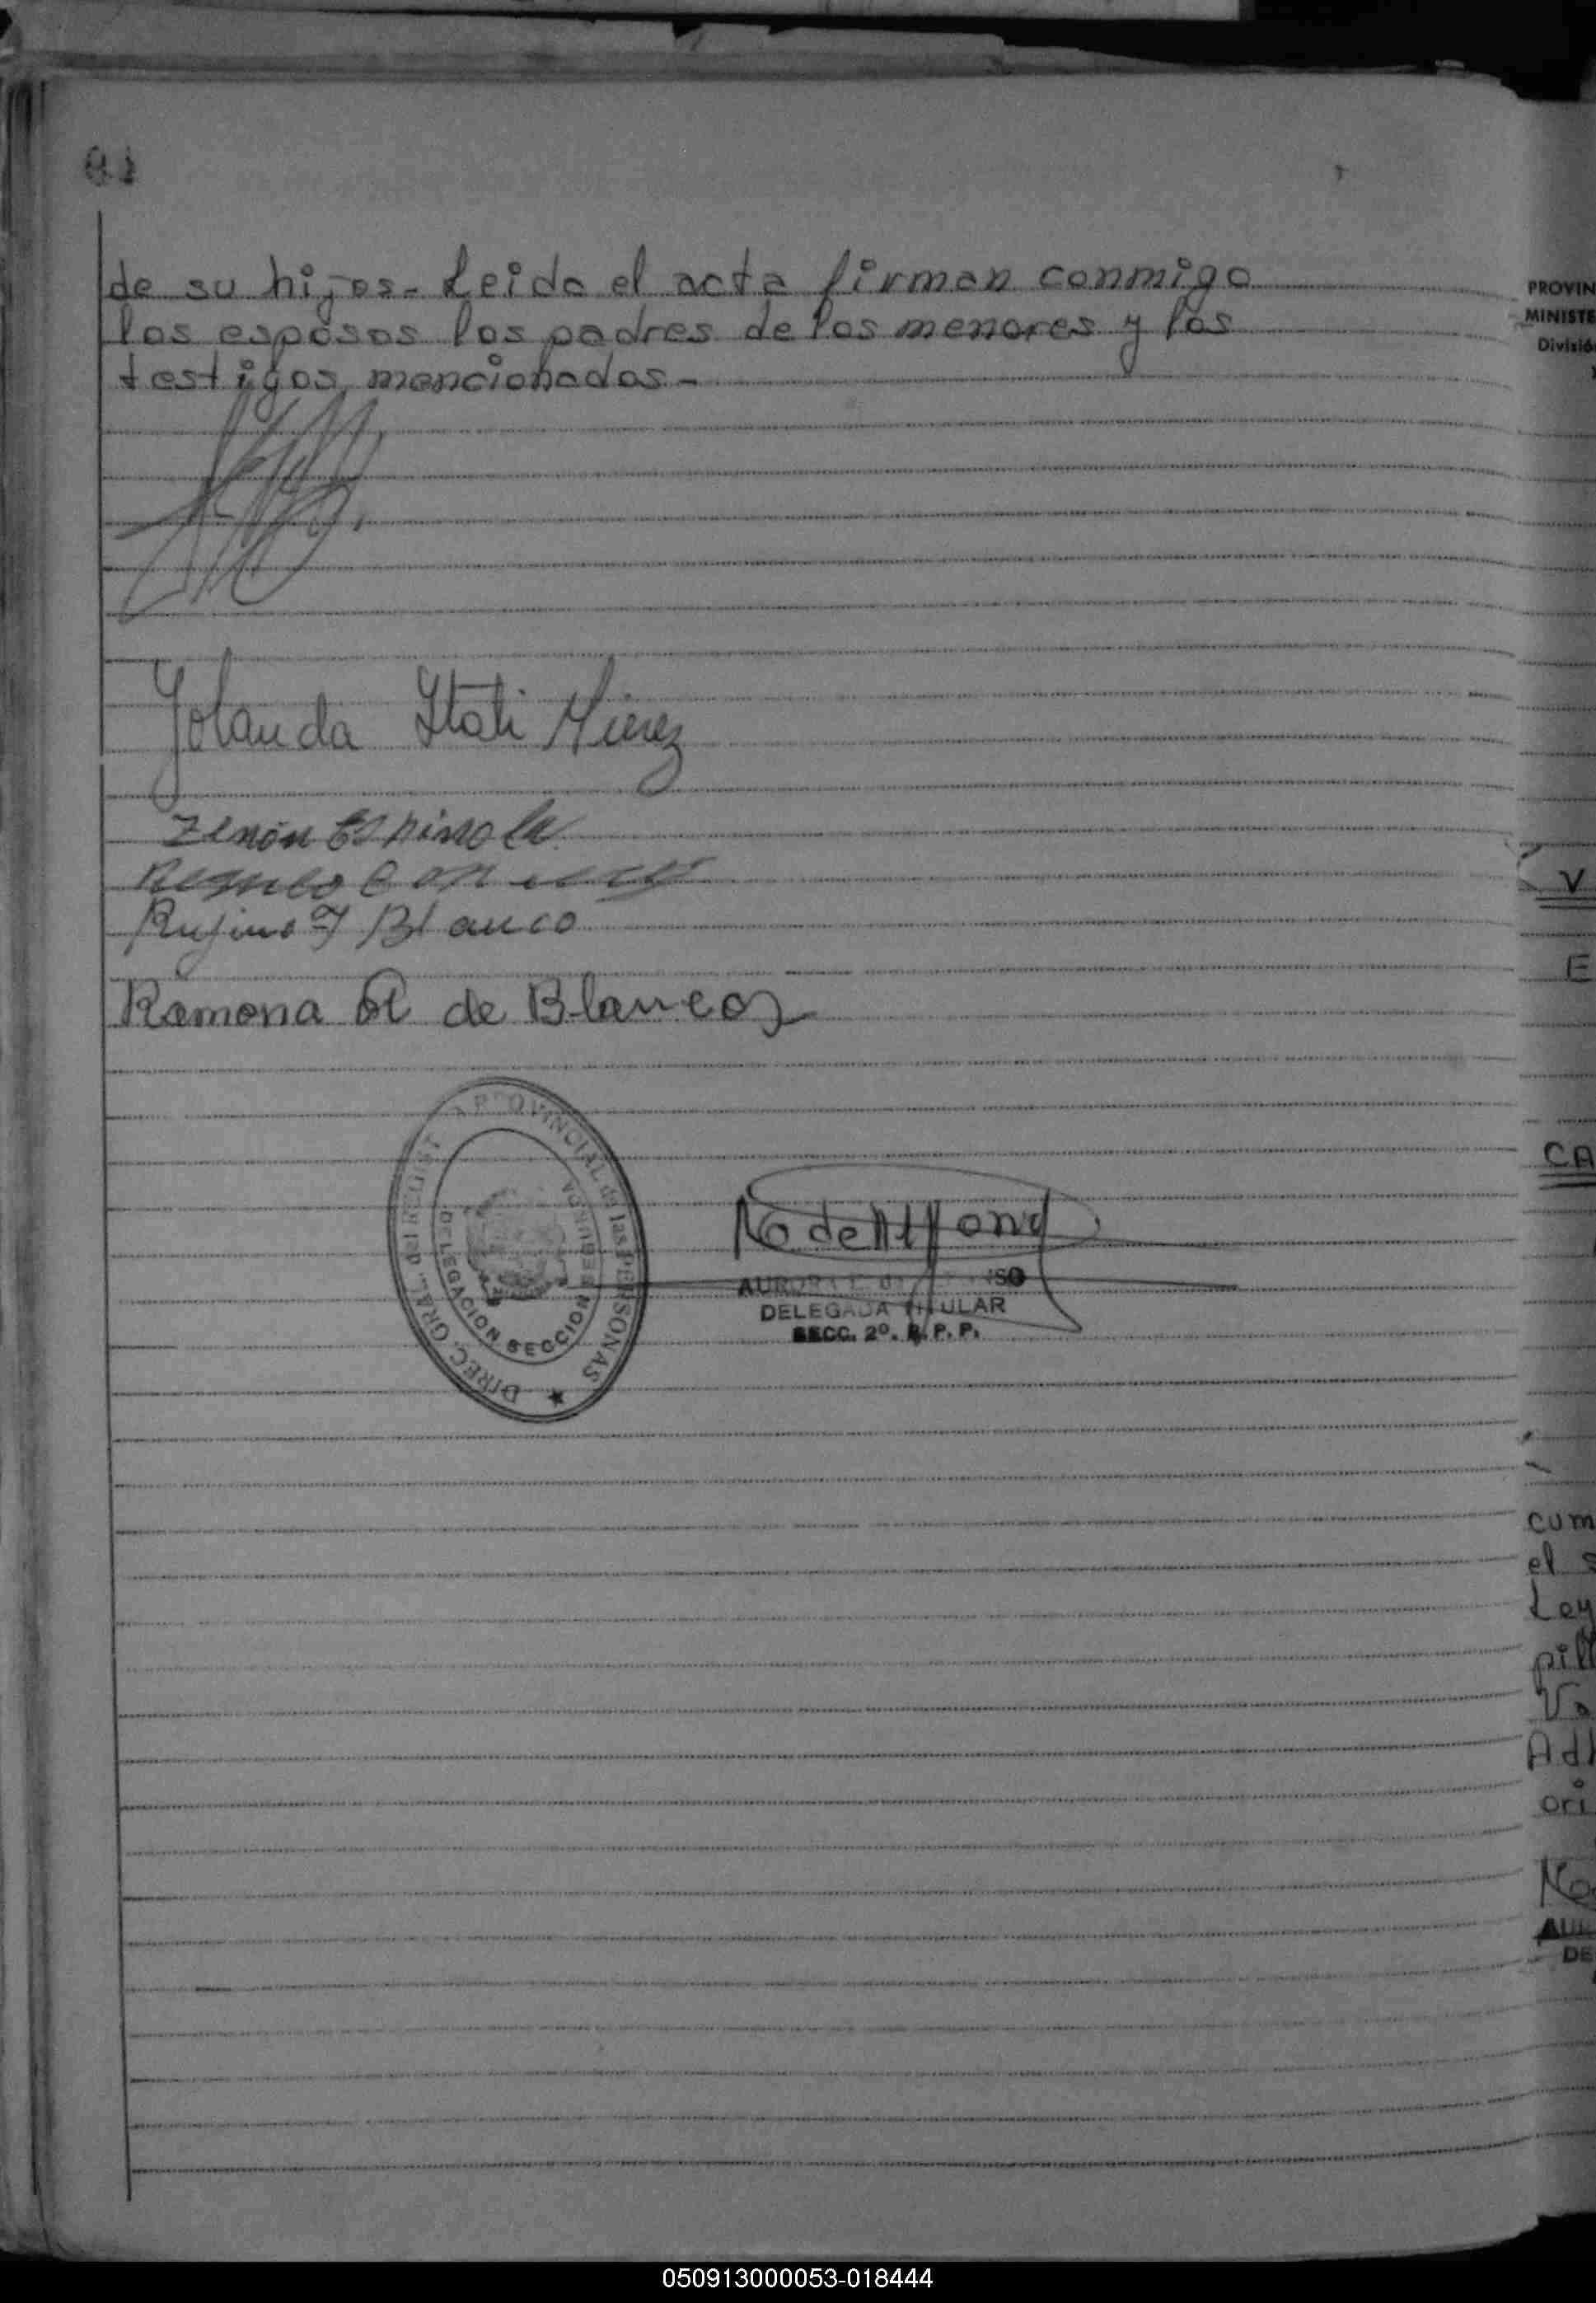 de su hijos.- Leida el acta firman conmigo
los esposos los padres de los menores y los
testigos mencionados.-
Yolanda Itati
Zenón Espinola
Rufino Blanco
Ramona R de Blanco
DIREC. GRAL. del REGIST PROVINCIAL de las PERSONAS
DELEGACION SECCION SEGUNDA
DELEGADA TITULAR
SECC. 2º. R. P. P.
PROVIN
MINISTE
Divisió
V
E
CA
cum
el s
Ley
pill
Va
Ad
ori
AU
DE
050913000053-018444